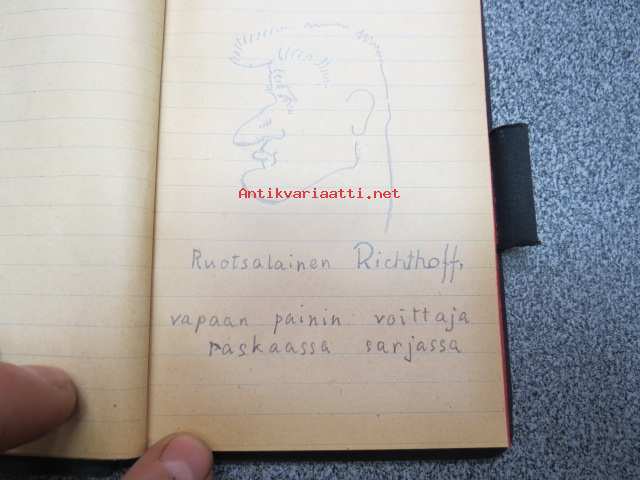 Antikvariaatti.net
Ruotsalainen Richthoff,
vapaan painin voittaja
raskaassa sarjassa